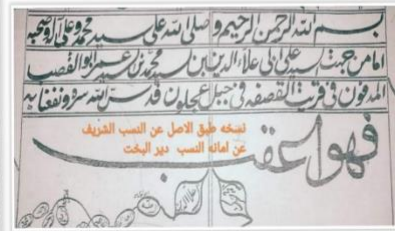 بسم الله الرحمن الرحيم وصلى الله على سيد محمد وعلى آله وصحبه
اما من جهت سيد علي ولي علاء الدين ابن سيد محمد بن سيد عمر ابو القصب
المدفون في قريت القصفه في جبل عجلون قدس الله سره ونفعنا به
فهوا عقب
نسخه طبق الاصل عن النسب الشريف
عن امانه النسب دير البخت